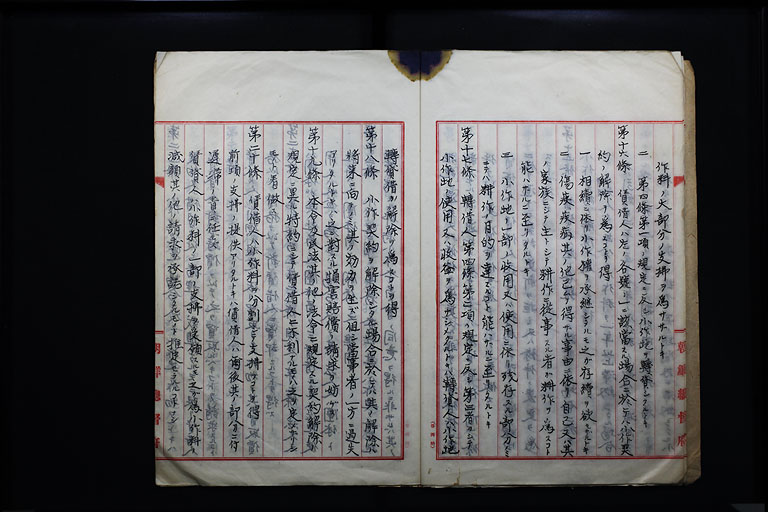 作料ノ大部分ノ支拂ヲ爲サザルトキ
二 第四條第一項ノ規定ニ反シ小作地ノ轉貸ヲ
第十六條 賃借人ハ左ノ各號ノ一ニ該當スル場合ニ於テハ小作契
約ノ解除ヲ爲スコトヲ得
一 相續ニ依リ小作權ヲ承継シタルモ之ガ存續ヲ欲セザルトキ
二 傷痍疾病其ノ他已ムヲ得ザル事由ニ依リ自己又ハ其
ノ家族ニシテ主トシテ耕作ニ從事スル者ガ耕作ヲ爲スコト
能ハザルニ至リタルトキ
三 小作地ノ一部ノ收用又ハ使用ニ依リ殘存スル部分ノミ
ニテハ耕作ノ目的ヲ達スルコト能ハザルニ至リタルトキ
第十七條 轉借人第四條第二項ノ規定ニ反シ第三者ヲシテ
小作地ノ使用又ハ收益ヲ爲サシメタルトキハ轉貸人ハ小作地
朝鮮總督府
轉貸借ノ解除ヲ爲スコトヲ得
第十八條 小作契約ノ解除アリタル場合ニ於テハ其ノ解除ハ
將來ニ向テノミ其ノ効力ヲ生ズ但シ當事者ノ一方ニ過失
アリタルトキハ之ニ對スル損害賠償ノ請求ヲ妨ゲズ
第十九條 本令及民法其ノ他ノ法令ニ規定スル契約解除
ノ規定ニ異ル特約ニシテ賃借人ニ不利ナルモノハ之ヲ定メザリシ
モノト看做ス
第二十條 賃借人ハ小作料ヲ分割シテ支拂フコトヲ得
前項ノ支拂ノ提供アリタルトキハ賃借人ハ爾後其ノ部分ニ付
遲滯ノ責ニ任ゼズ
賃貸人ガ小作料ノ一部ノ支拂ヲ受領スルモ之ヲ爲小作料ノ
減額其ノ他ノ請求ヲ承諾シタルモノト推定セラルルコトナシ
朝鮮總督府